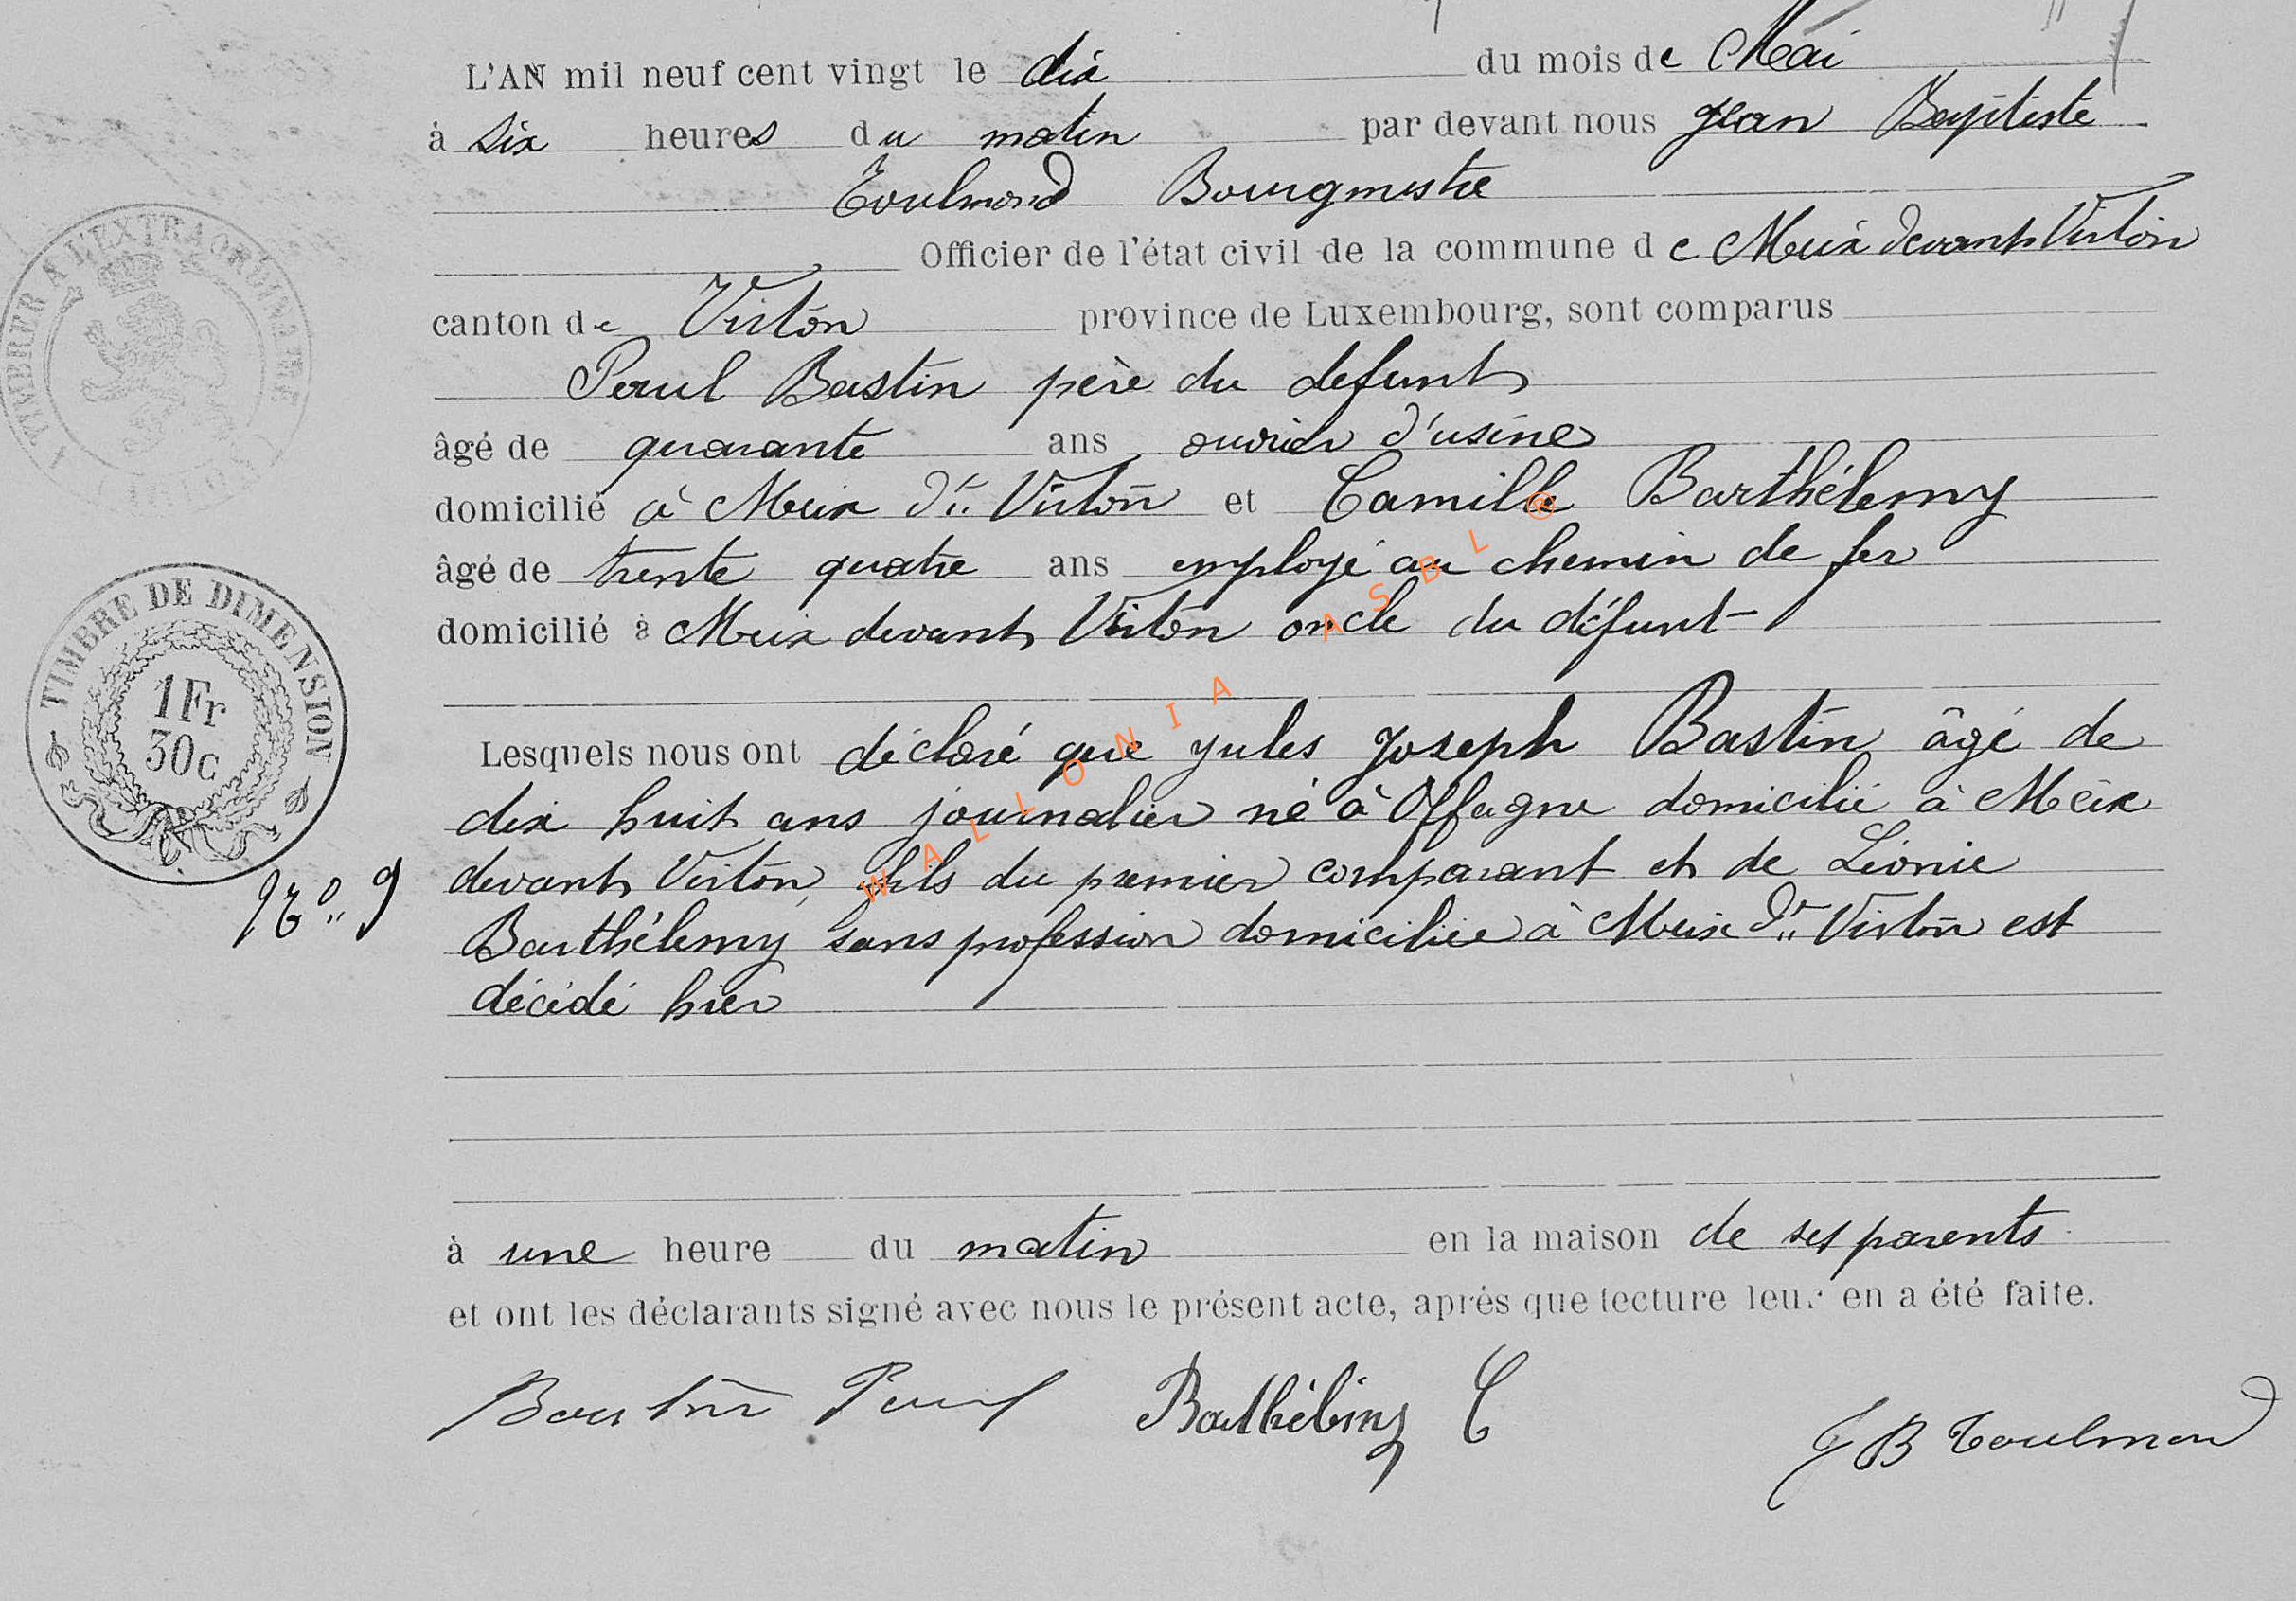 L'AN mil neuf cent vingt le dix du mois de Mai
à six heures du matin par devant nous Jean Baptiste
Toulmond Bourgmestre
Officier de l'état civil de la commune de Meix devant Virton
canton de Virton province de Luxembourg, sont comparus
Paul Bastin père du defunt
âgé de quarante ans ouvrier d'usine
domicilié à Meix dt Virton et Camille Barthélemy
âgé de trente quatre ans employé au chemin de fer
domicilié à Meix devant Virton oncle du défunt
Lesquels nous ont déclaré que Jules Joseph Bastin âgé de
dix huit ans journalier né à Offagne domicilié à Meix
devant Virton, fils du premier comparant et de Léonie
Barthélemy sans profession domiciliée à Meix dt Virton est
décédé hier
à une heure du matin en la maison de ses parents
et ont les déclarants signé avec nous le présent acte, après que lecture leur en a été faite.
Bastin Paul Barthélemy C
J B Toulmond
No 9
TIMBRER A L'EXTRAORDINAIRE
TIMBRE DE DIMENSION
1Fr
30c
WALLONIA ASBL ®